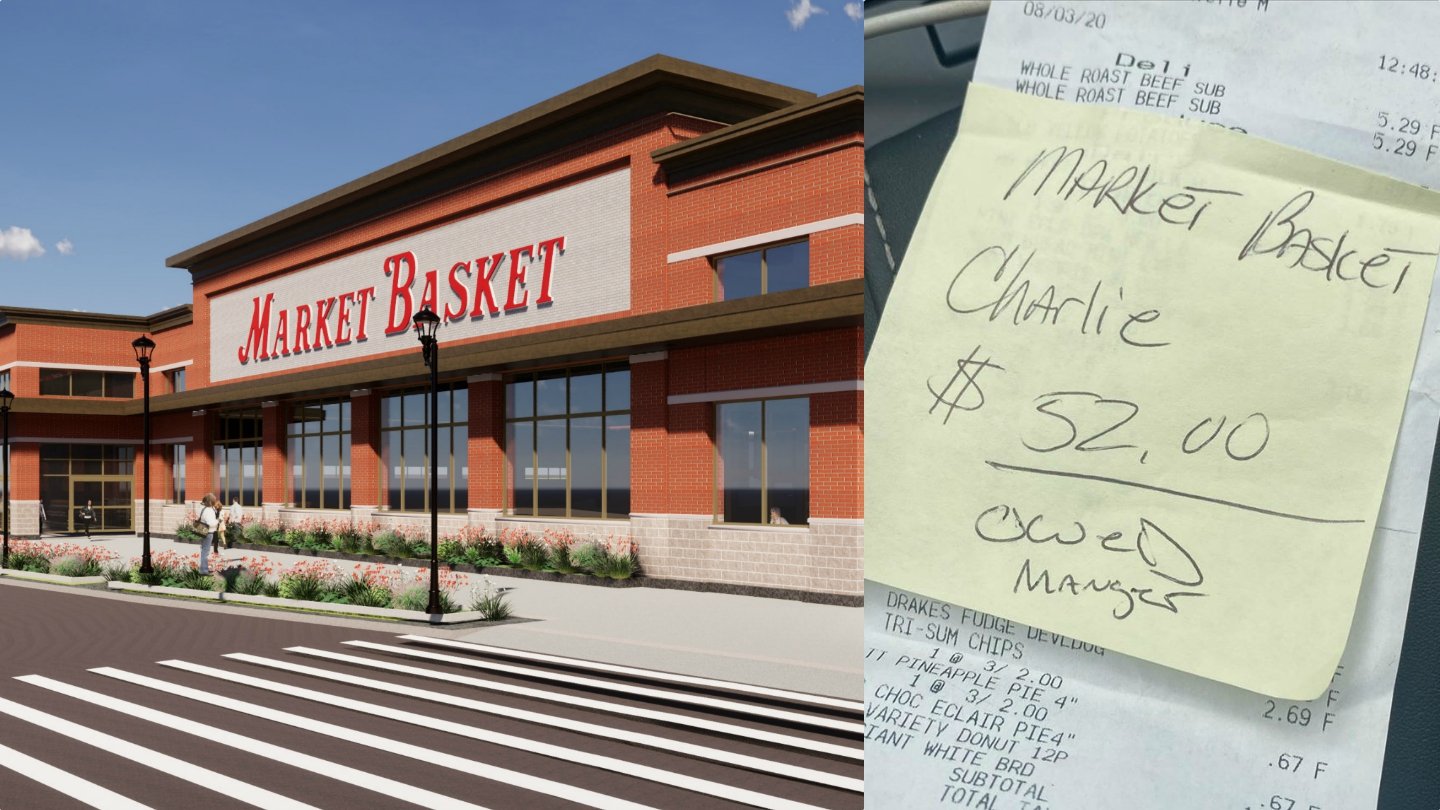 MARKET BASKET
08/03/20
12:48:
Deli
WHOLE ROAST BEEF SUB
WHOLE ROAST BEEF SUB
5.29 F
5.29 F
MARKET BASKET
Charlie
$ 52.00
OWED
MANGER
DRAKES FUDGE DEVLDOG
TRI-SUM CHIPS
1 @ 3/ 2.00
PINEAPPLE PIE 4"
2.69 F
1 @ 3/ 2.00
CHOC ECLAIR PIE4"
VARIETY DONUT 12P
.67 F
IANT WHITE BRD
SUBTOTAL
.67
TOTAL